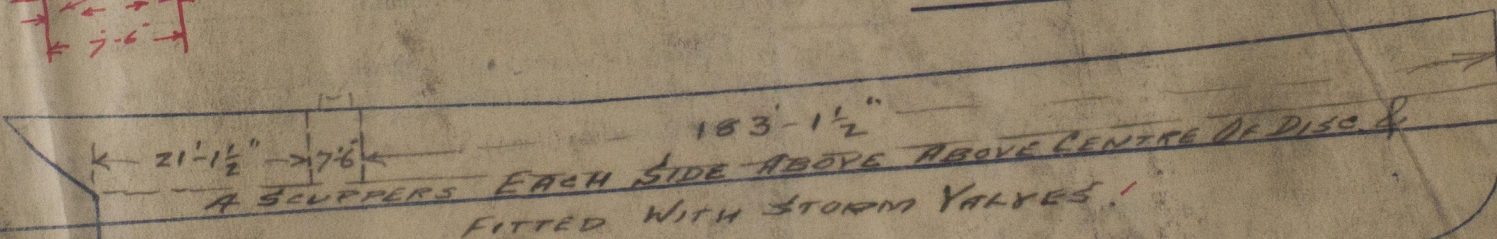 7-6
183'-1½"
21'-1½" 7'6
4 SCUPPERS EACH SIDE ABOVE ABOVE CENTRE OF DISC &
FITTED WITH STORM VALVES.